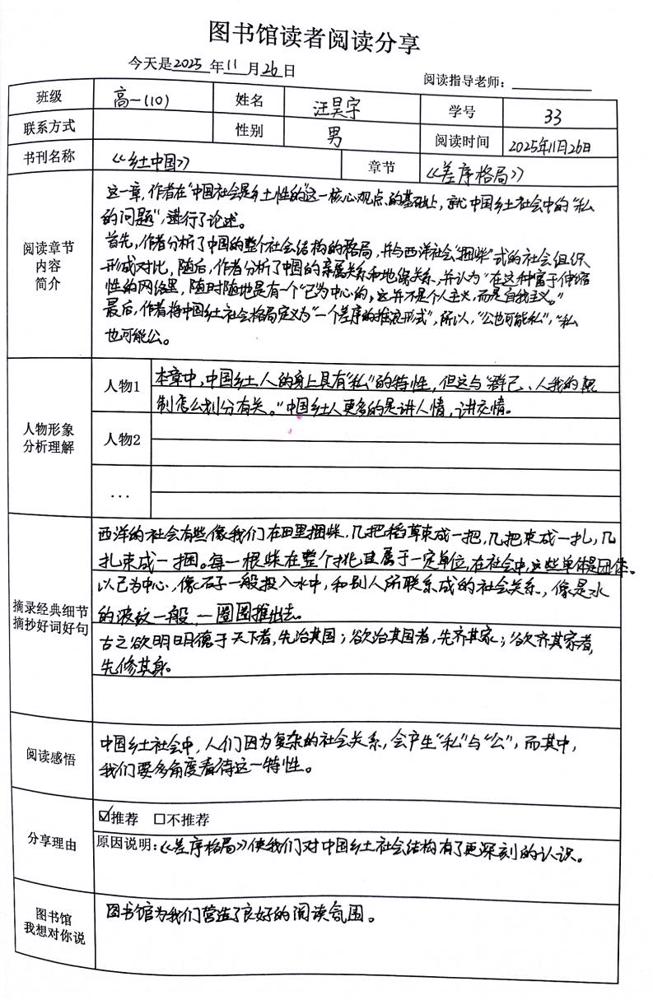 图书馆读者阅读分享
今天是2025年11月26日 阅读指导老师：
班级 高一(10) 姓名 汪昊宇 学号 33
联系方式 性别 男 阅读时间 2025年11月26日
书刊名称 《乡土中国》 章节 《差序格局》
阅读章节内容简介
这一章，作者在“中国社会是乡土性的”这一核心观点的基础上，就中国乡土社会中的“私
的问题”，进行了论述。
首先，作者分析了中国的整个社会结构的格局，并与西洋社会“捆柴”式的社会组织
形成对比，随后，作者分析了中国的亲属关系和地缘关系，并认为“在这种富于伸缩
性的网络里，随时随地是有一个‘己’为中心的，这并不是个人主义，而是自我主义。”
最后，作者将中国乡土社会格局定义为“一个差序的推浪形式”，所以，“公也可能私”，“私
也可能公。
人物形象分析理解
人物1 本章中，中国乡土人的身上具有“私”的特性，但这与“群己、人我的
制怎么划分有关。”中国乡土人更多的是讲人情，讲交情。
人物2
…
摘录经典细节摘抄好词好句
西洋的社会有些像我们在田里捆柴，几把稻草束成一把，几把束成一扎，几
扎束成一捆。每一根柴在整个挑里属于一定单位，在社会中，这些单体是团体。
以己为中心，像石子一般投入水中，和别人所联系成的社会关系，像是水
的波纹一般，一圈圈推出去。
古之欲明明德于天下者，先治其国；欲治其国者，先齐其家；欲齐其家者，
先修其身。
阅读感悟
中国乡土社会中，人们因为复杂的社会关系，会产生“私”与“公”，而其中，
我们要多角度看待这一特性。
分享理由
☑推荐 □不推荐
原因说明：《差序格局》使我们对中国乡土社会结构有了更深刻的认识。
图书馆我想对你说
图书馆为我们营造了良好的阅读氛围。